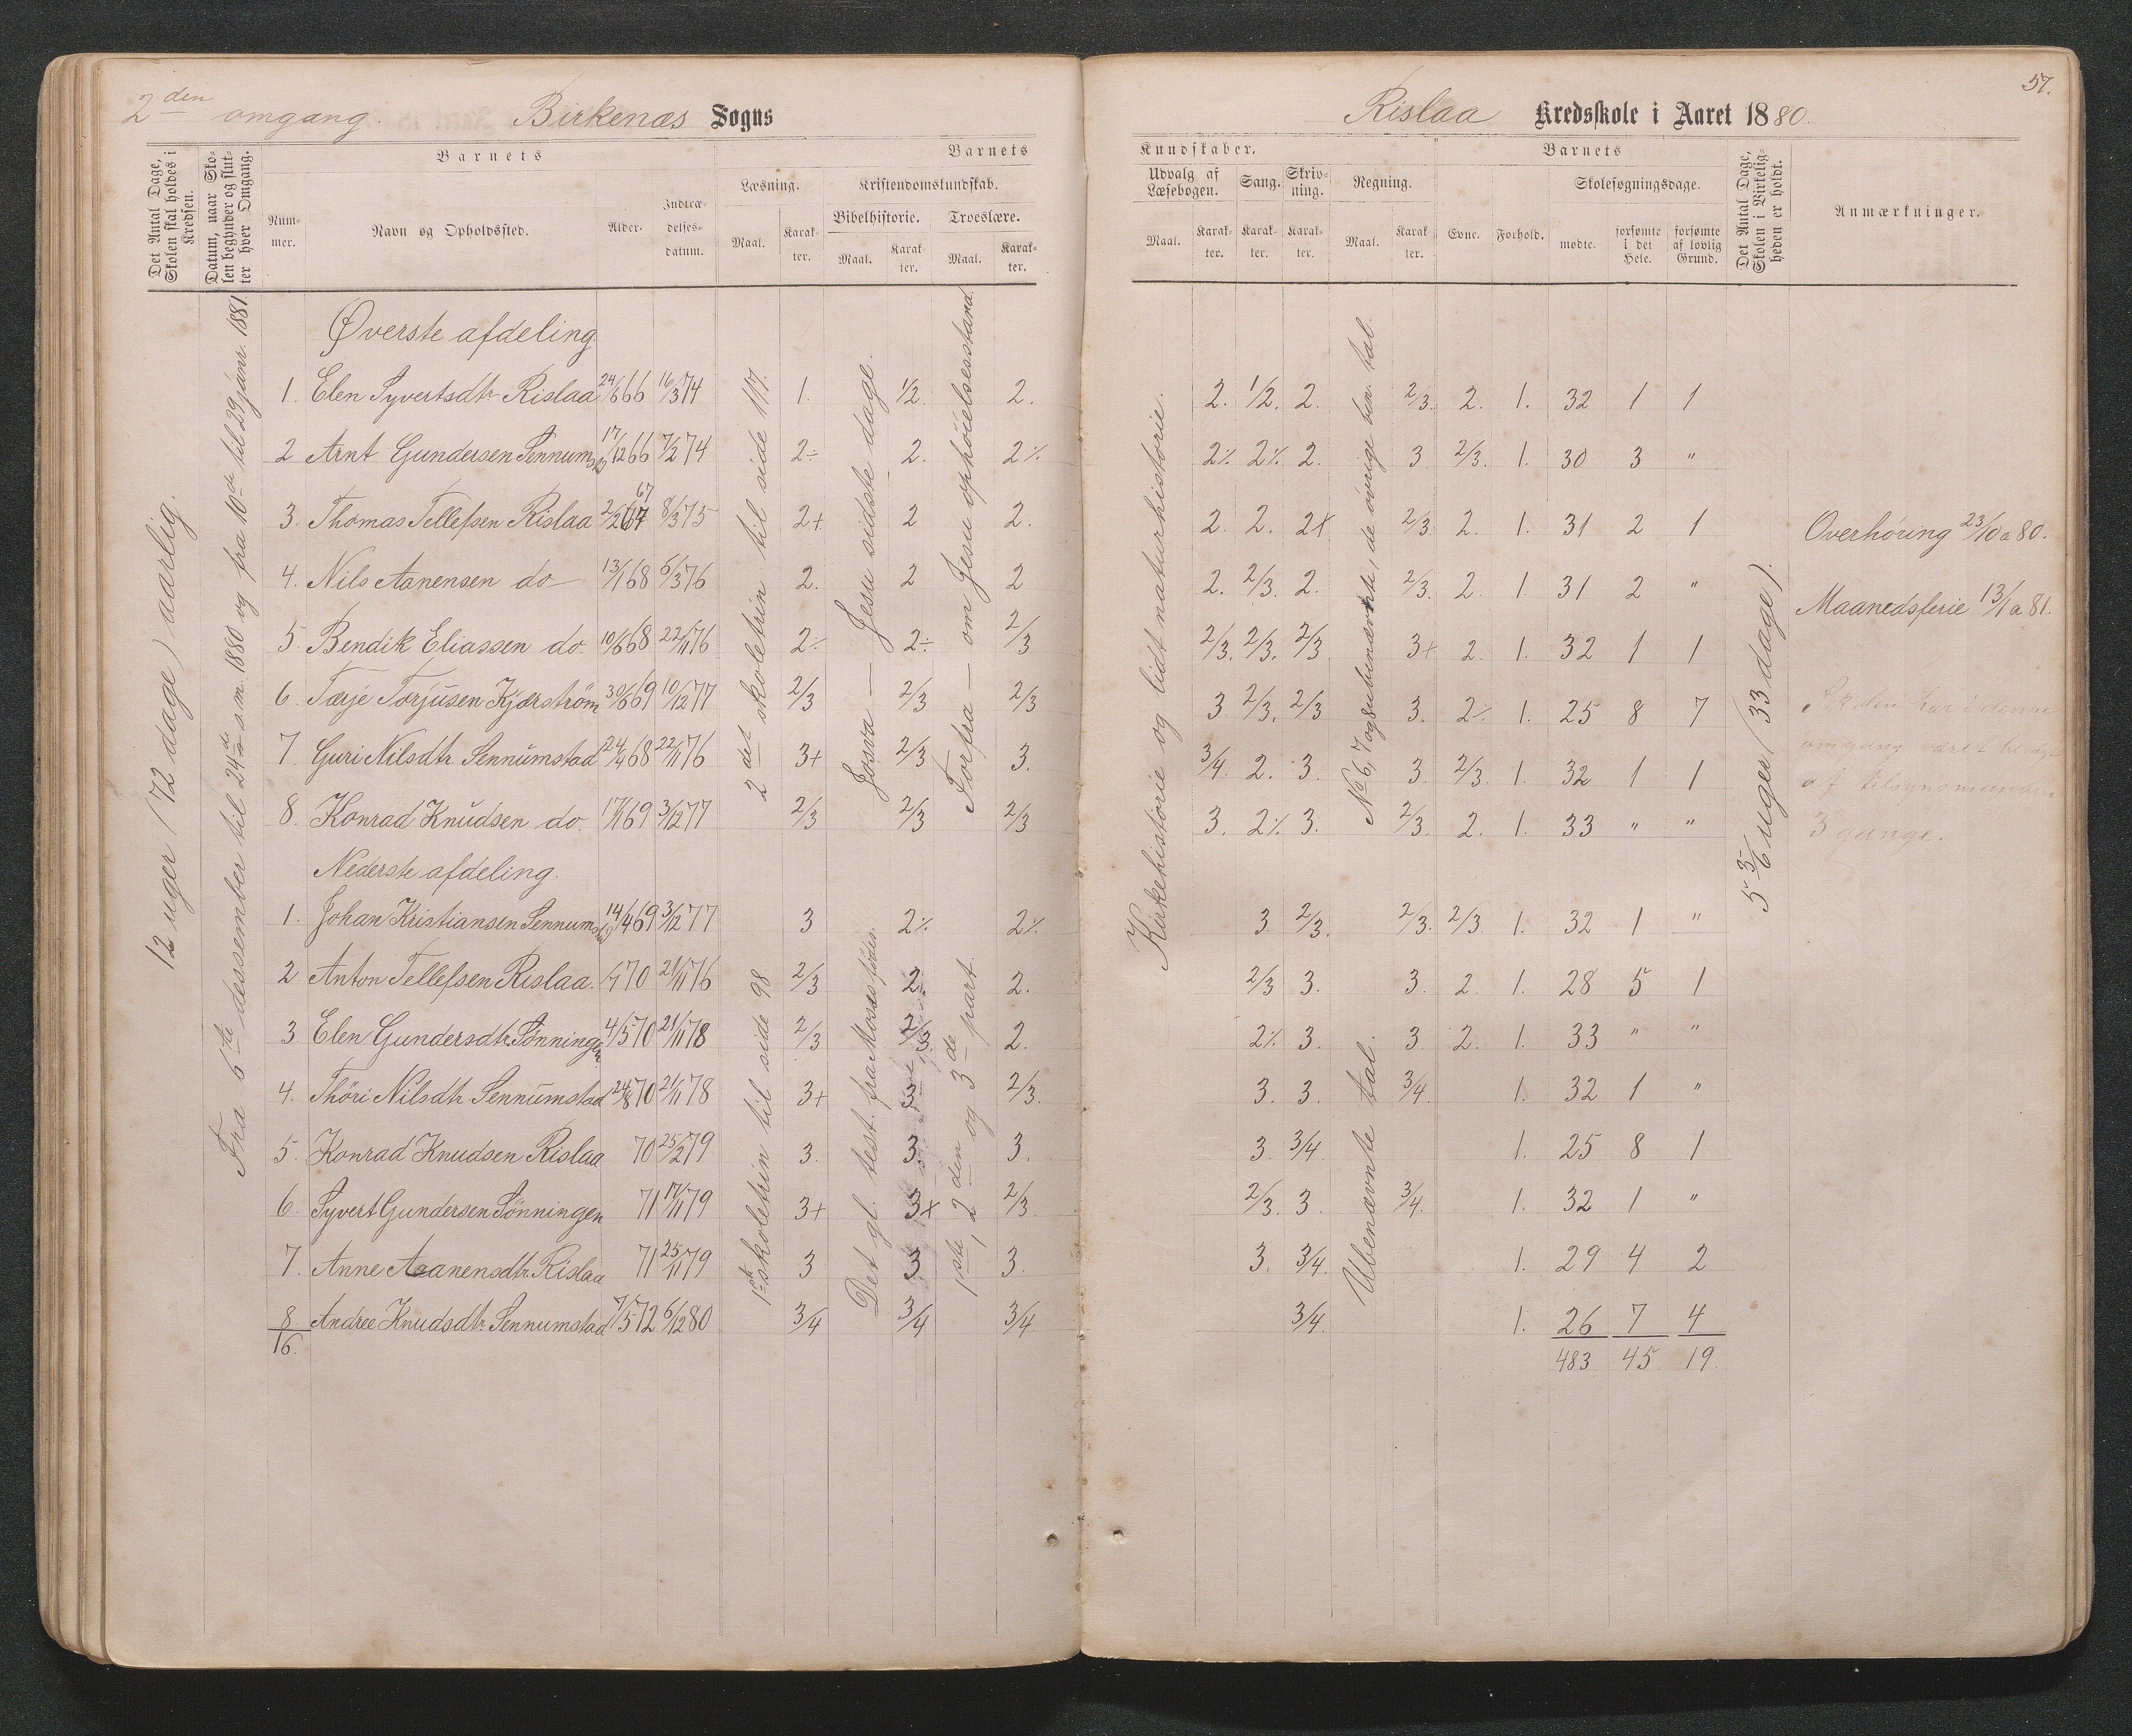 2den omgang. Birkenæs Sogns
Det Antal Dage, Skolen skal holdes i Kredsen.
Datum, naar Skolen begynder og slutter hver Omgang.
Barnets
Nummer.
Navn og Opholdssted.
Alder.
Indtrædelsesdatum.
Barnets
Læsning.
Maal.
Karakter.
Kristendomskundskab.
Bibelhistorie.
Maal.
Karakter.
Troeslære.
Maal.
Karakter.
12 uger (72 dage) aarlig.
Fra 6te dessember til 24de s.m. 1880 og fra 10de til 29 janr. 1881
2det skoletrin til side 117.
Josva — Jesu sidste dage.
Forfra — om Jesu ophöielsesstand.
Øverste afdeling.
1. Elen Syvertsdtr Rislaa 24/6 66 16/3 74 1. 1/2. 2.
2 Arnt Gundersen Sennumstad 17/12 66 7/2 74 2÷ 2. 2%
3. Thomas Tellefsen Rislaa 2/2 67 67 8/3 75 2+ 2 2.
4. Nils Aanensen do 13/1 68 6/3 76 2. 2 2
5. Bendik Eliassen do. 10/6 68 22/11 76 2÷ 2÷ 2/3
6. Tærje Torjusen Kjærström 30/6 69 10/12 77 2/3 2/3 2/3
7. Guri Nilsdtr. Sennumstad 24/4 68 22/11 76 3+ 2/3 3.
8. Konrad Knudsen do. 17/1 69 3/12 77 2/3 2/3 2/3
Nederste afdeling.
1ste skoletrin til side 98
Det gl. test. fra Moses
1ste, 2den og 3de part.
1. Johan Kristiansen Sennumstad 14/4 69 3/12 77 3 2% 2%
2 Anton Tellefsen Rislaa. 70 21/11 76 2/3 2. 2.
3 Elen Gundersdtr. Sønningen 4/5 70 21/11 78 2/3 2/3. 2.
4. Thöri Nilsdtr. Sennumstad 24/8 70 21/11 78 3+ 3 2/3.
5. Konrad Knudsen Rislaa 70 25/2 79 3. 3. 3.
6. Syvert Gundersen Sønningen 71 17/11 79 3+ 3+ 2/3.
7. Anne Aanensdtr. Rislaa 71 25/11 79 3 3 3.
8 Andree Knudsdtr. Sennumstad 7/5 72 6/12 80 3/4 3/4 3/4
16.
57.
Rislaa Kredsskole i Aaret 1880.
Kundskaber.
Udvalg af Læsebogen.
Maal.
Karakter.
Sang.
Karakter.
Skrivning.
Karakter.
Regning.
Maal.
Karakter.
Barnets
Evne.
Forhold.
Skolesøgningsdage.
mødte.
forsømte i det Hele.
forsømte af lovlig Grund.
Det Antal Dage, Skolen i Virkeligheden er holdt.
Anmærkninger.
Kirkehistorie og lidt naturhistorie.
No 6, 7 og 8 ubenævnte, de övrige ben. tal.
5 3/6 uger (33 dage).
2. 1/2. 2. 2/3. 2. 1. 32 1 1
2% 2% 2. 3. 2/3. 1. 30 3 "
2. 2. 2+ 2/3. 2. 1. 31 2 1
2. 2/3. 2. 2/3. 2. 1. 31 2 "
2/3. 2/3. 2/3 3+ 2. 1. 32 1 1
3 2/3. 2/3 3. 2% 1. 25 8 7
3/4. 2. 3. 3. 2/3. 1. 32 1 1
3. 2% 3. 2/3. 2. 1. 33 " "
Ubenævnte tal.
3 2/3. 2/3. 2/3 1. 32 1 "
2/3 3. 3. 2. 1. 28 5 1
2% 3. 3. 2. 1. 33 " "
3. 3. 3/4. 1. 32 1 "
3. 3/4. 1. 25 8 1
2/3. 3. 3/4. 1. 32 1 "
3. 3/4. 1. 29 4 2
3/4. 1. 26 7 4
483 45 19.
Overhöring 23/10 a 80.
Maanedsferie 13/1 a 81.
Skolen har i denne
omgang været besögt
af tilsynsmanden
3 gange.